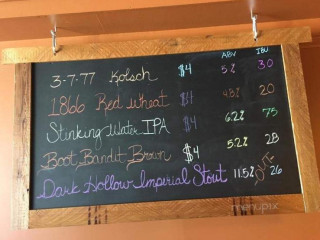 ABV IBU
3-7-77 Kolsch $4 5% 30
1866 Red Wheat $4 4.8% 20
Stinking Water IPA $4 6.2% 75
Boot Bandit Brown $4 5.2% 28
Dark Hollow Imperial Stout 11.5% 26
menupix